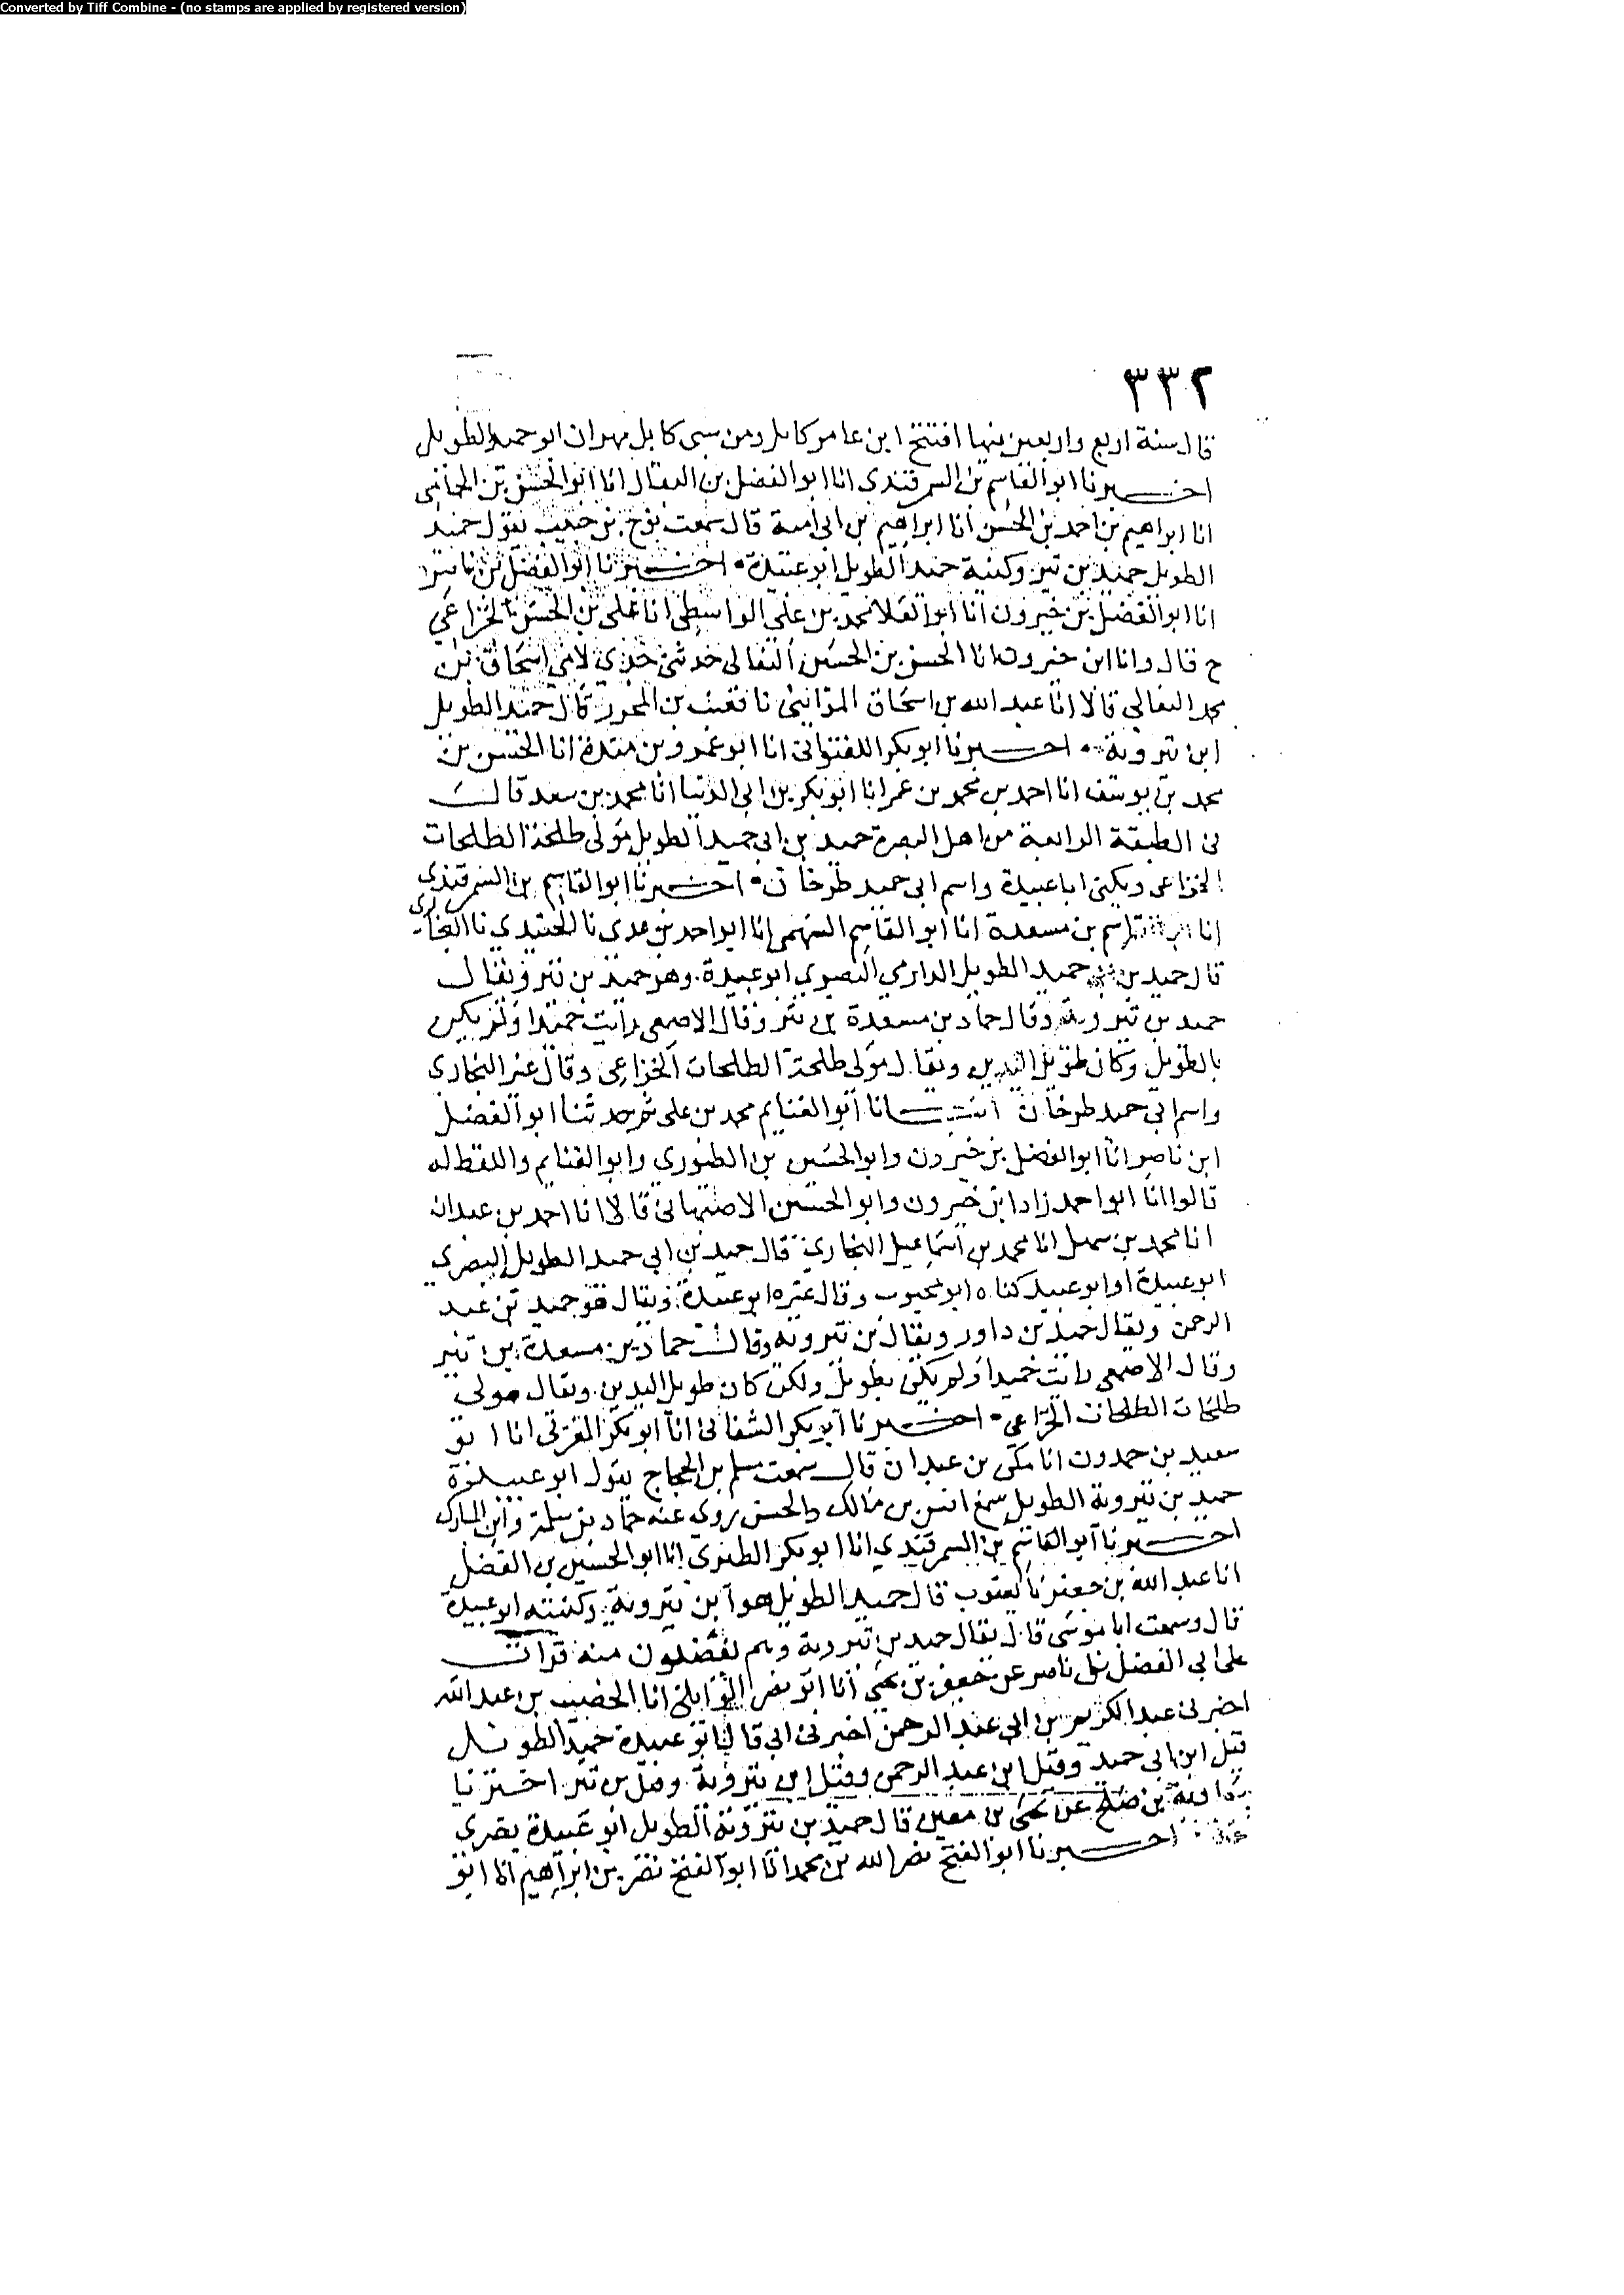 Converted by Tiff Combine - (no stamps are applied by registered version)
٣٣٢
قال سنة اربع واربعين فيها افتتح ابن عامر كابل ومن سبى كابل مهران ابو حميد الطويل
اخبرنا ابو القاسم بن السمرقندى انا ابو الفضل بن البقال انا ابو الحسن بن الحمامى
انا ابراهيم بن احمد بن الحسن انا ابراهيم بن ابى امية قال سمعت نوح بن حبيب يقول حميد
الطويل حميد بن تير وكنية حميد الطويل ابو عبيدة اخبرنا ابو الفضل بن ناصر
انا ابو الفضل بن خيرون انا ابو العلا محمد بن على الواسطى انا على بن الحسن الخزاعى
ح قال وانا ابن خيرون انا الحسن بن الحسين النعالى حدثنى جدي لامي اسحاق بن
محمد النعالي قالا انا عبد الله بن اسحاق المدائني نا قعنب بن المحرر قال حميد الطويل
ابن تيرويه اخبرنا ابو بكر اللفتوانى انا ابو عمرو بن مندة انا الحسن بن
محمد بن يوسف انا احمد بن محمد بن عمر انا ابو بكر بن ابي الدنيا انا محمد بن سعد قال
فى الطبقة الرابعة من اهل البصرة حميد بن ابى حميد الطويل مولى طلحة الطلحات
الخزاعى ويكنى ابا عبيدة واسم ابى حميد طرخان اخبرنا ابو القاسم بن السمرقندى
انا مسعدة انا ابو القاسم السهمى انا ابو احمد بن عدى نا الجنيدي نا البخاري
قال حميد بن حميد الطويل الدارمي البصري ابو عبيدة وهو حميد بن تير ويقال
حميد بن تيرويه وقال حماد بن مسعدة بن تير وقال الاصمعى رايت حميدا ولم يكن
بالطويل وكان طويل اليدين ويقال مولى طلحة الطلحات الخزاعى وقال غير البخارى
واسم ابي حميد طرخان انبانا ابو الغنايم محمد بن على ثم حدثنا ابو الفضل
ابن ناصر انا ابو الفضل بن خيرون وابو الحسين بن الطيوري وابو الغنايم واللفظ له
قالوا انا ابو احمد زاد ابن خيرون وابو الحسين الاصبهانى قالا انا احمد بن عبدان
انا محمد بن سهل انا محمد بن اسماعيل البخاري قال حميد بن ابي حميد الطويل البصري
ابو عبيدة او ابو عبيد كناه ابو محبوب وقال غيره ابو عبيدة ويقال هو حميد بن عبد
الرحمن ويقال حميد بن داور ويقال بن تيرويه وقال حماد بن مسعدة بن تير
وقال الاصمعى رايت حميدا ولم يكن بطويل ولكن كان طويل اليدين ويقال مولى
طلحات الطلحات الخزاعي اخبرنا ابو بكر الشقانى انا ابو بكر المغربى انا ابو
سعيد بن حمدون انا مكى بن عبدان قال سمعت مسلم بن الحجاج يقول ابو عبيدة
حميد بن تيرويه الطويل سمع انس بن مالك والحسن روي عنه حماد بن سلمة وابن المبارك
اخبرنا ابو القاسم بن السمرقندي انا ابو بكر الطبرى انا ابو الحسين بن الفضل
انا عبد الله بن جعفر نا يعقوب قال حميد الطويل هو ابن تيرويه وكنيته ابو عبيدة
قال وسمعت ابا موسى قال يقال حميد بن تيرويه وهم يغضبون منه قرات
على ابي الفضل بن ناصر عن جعفر بن يحيى انا ابو نصر الوايلى انا الخصيب بن عبد الله
اخبرنى عبد الكريم بن ابى عبد الرحمن اخبرنى ابي قال ابو عبيدة حميد الطويل
قيل ابن ابي حميد وقيل ابن عبد الرحمن وقيل ابن تيرويه وقيل بن تير اخبرنا
معاوية بن صلح عن يحيى بن معين قال حميد بن تيرويه الطويل ابو عبيدة بصري
اخبرنا ابو الفتح نصر الله بن محمد انا ابو الفتح نصر بن ابراهيم انا ابو